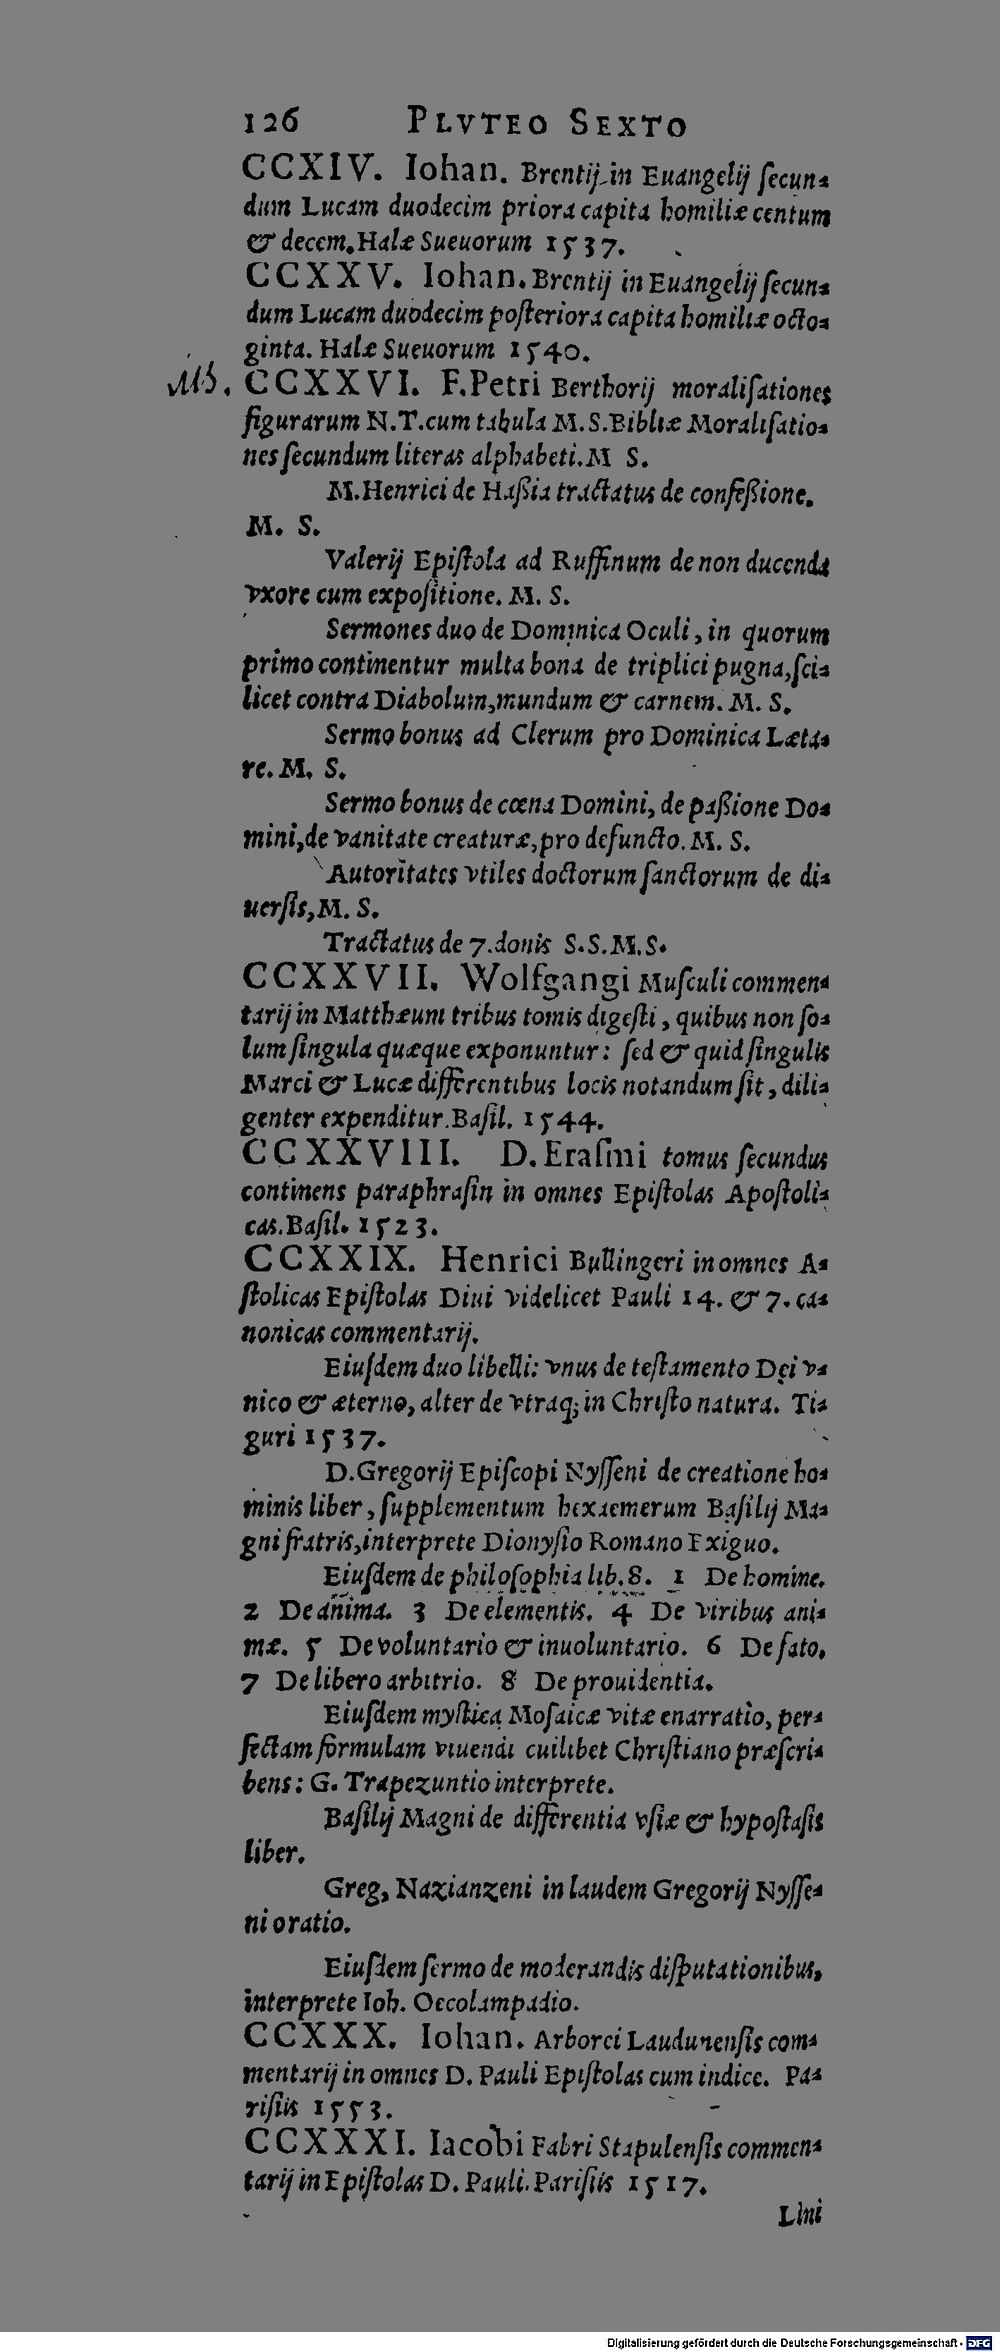 126 PLVTEO SEXTO
CCXIV. Iohan. Brentij in Euangelij ſecun-
dum Lucam duodecim priora capita homiliæ centum
& decem. Halæ Sueuorum 1537.
CCXXV. Iohan. Brentij in Euangelij ſecun-
dum Lucam duodecim poſteriora capita homiliæ octo-
ginta. Halæ Sueuorum 1540.
MS. CCXXVI. F. Petri Berthorij moraliſationes
figurarum N.T. cum tabula M.S. Bibliæ Moraliſatio-
nes ſecundum literas alphabeti. M S.
M. Henrici de Haßia tractatus de confeßione.
M. S.
Valerij Epiſtola ad Ruffinum de non ducenda
vxore cum expoſitione. M. S.
Sermones duo de Dominica Oculi, in quorum
primo continentur multa bona de triplici pugna, ſci-
licet contra Diabolum, mundum & carnem. M. S.
Sermo bonus ad Clerum pro Dominica Læta-
re. M. S.
Sermo bonus de cœna Domini, de paßione Do-
mini, de vanitate creaturæ, pro defuncto. M. S.
Autoritates vtiles doctorum ſanctorum de di-
uerſis, M. S.
Tractatus de 7. donis S.S.M.S.
CCXXVII. Wolfgangi Muſculi commen-
tarij in Matthæum tribus tomis digeſti, quibus non ſo-
lum ſingula quæque exponuntur: ſed & quid ſingulis
Marci & Lucæ differentibus locis notandum ſit, dili-
genter expenditur. Baſil. 1544.
CCXXVIII. D. Eraſmi tomus ſecundus
continens paraphraſin in omnes Epiſtolas Apoſtoli-
cas. Baſil. 1523.
CCXXIX. Henrici Bullingeri in omnes A-
ſtolicas Epiſtolas Diui videlicet Pauli 14. & 7. ca-
nonicas commentarij.
Eiuſdem duo libelli: vnus de teſtamento Dei v-
nico & æterno, alter de vtraq; in Chriſto natura. Ti-
guri 1537.
D. Gregorij Epiſcopi Nyſſeni de creatione ho-
minis liber, ſupplementum hexaemerum Baſilij Ma-
gni fratris, interprete Dionyſio Romano Exiguo.
Eiuſdem de philoſophia lib. 8. 1 De homine.
2 De anima. 3 De elementis. 4 De viribus ani-
mæ. 5 De voluntario & inuoluntario. 6 De fato,
7 De libero arbitrio. 8 De prouidentia.
Eiuſdem myſtica Moſaicæ vitæ enarratio, per-
fectam formulam viuendi cuilibet Chriſtiano præſcri-
bens: G. Trapezuntio interprete.
Baſilij Magni de differentia vſiæ & hypoſtaſis
liber.
Greg, Nazianzeni in laudem Gregorij Nyſſe-
ni oratio.
Eiuſdem ſermo de moderandis diſputationibus,
interprete Ioh. Oecolampadio.
CCXXX. Iohan. Arborei Laudunenſis com-
mentarij in omnes D. Pauli Epiſtolas cum indice. Pa-
riſiis 1553.
CCXXXI. Iacobi Fabri Stapulenſis commen-
tarij in Epiſtolas D. Pauli. Pariſiis 1517.
Lini
Digitalisierung gefördert durch die Deutsche Forschungsgemeinschaft - DFG